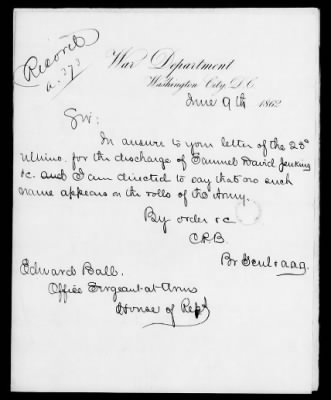 Record
a. 373
War Department
Washington City, D.C.
June 9th 1862
Sir:
In answer to your letter of the 28"
ultimo. for the discharge of Samuel David Jenkins
&c. and I am directed to say that no such
name appears on the rolls of the Army.
By order &c
C.P.B.
Br Genl & aag.
Edward Ball.
Office Sergeant-at-Arms
House of Rep's